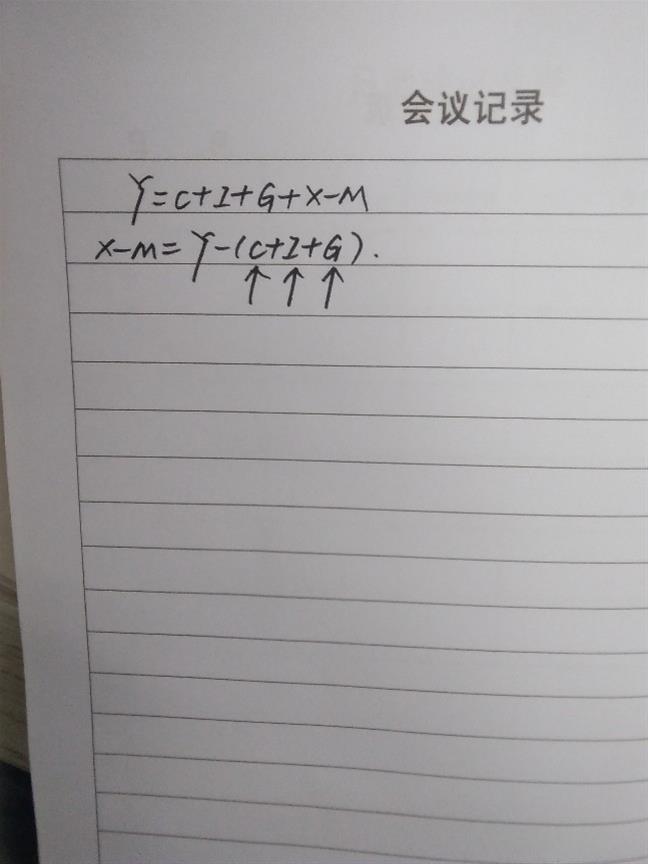 会议记录
Y=C+I+G+X-M
X-M=Y-(C+I+G).
↑ ↑ ↑